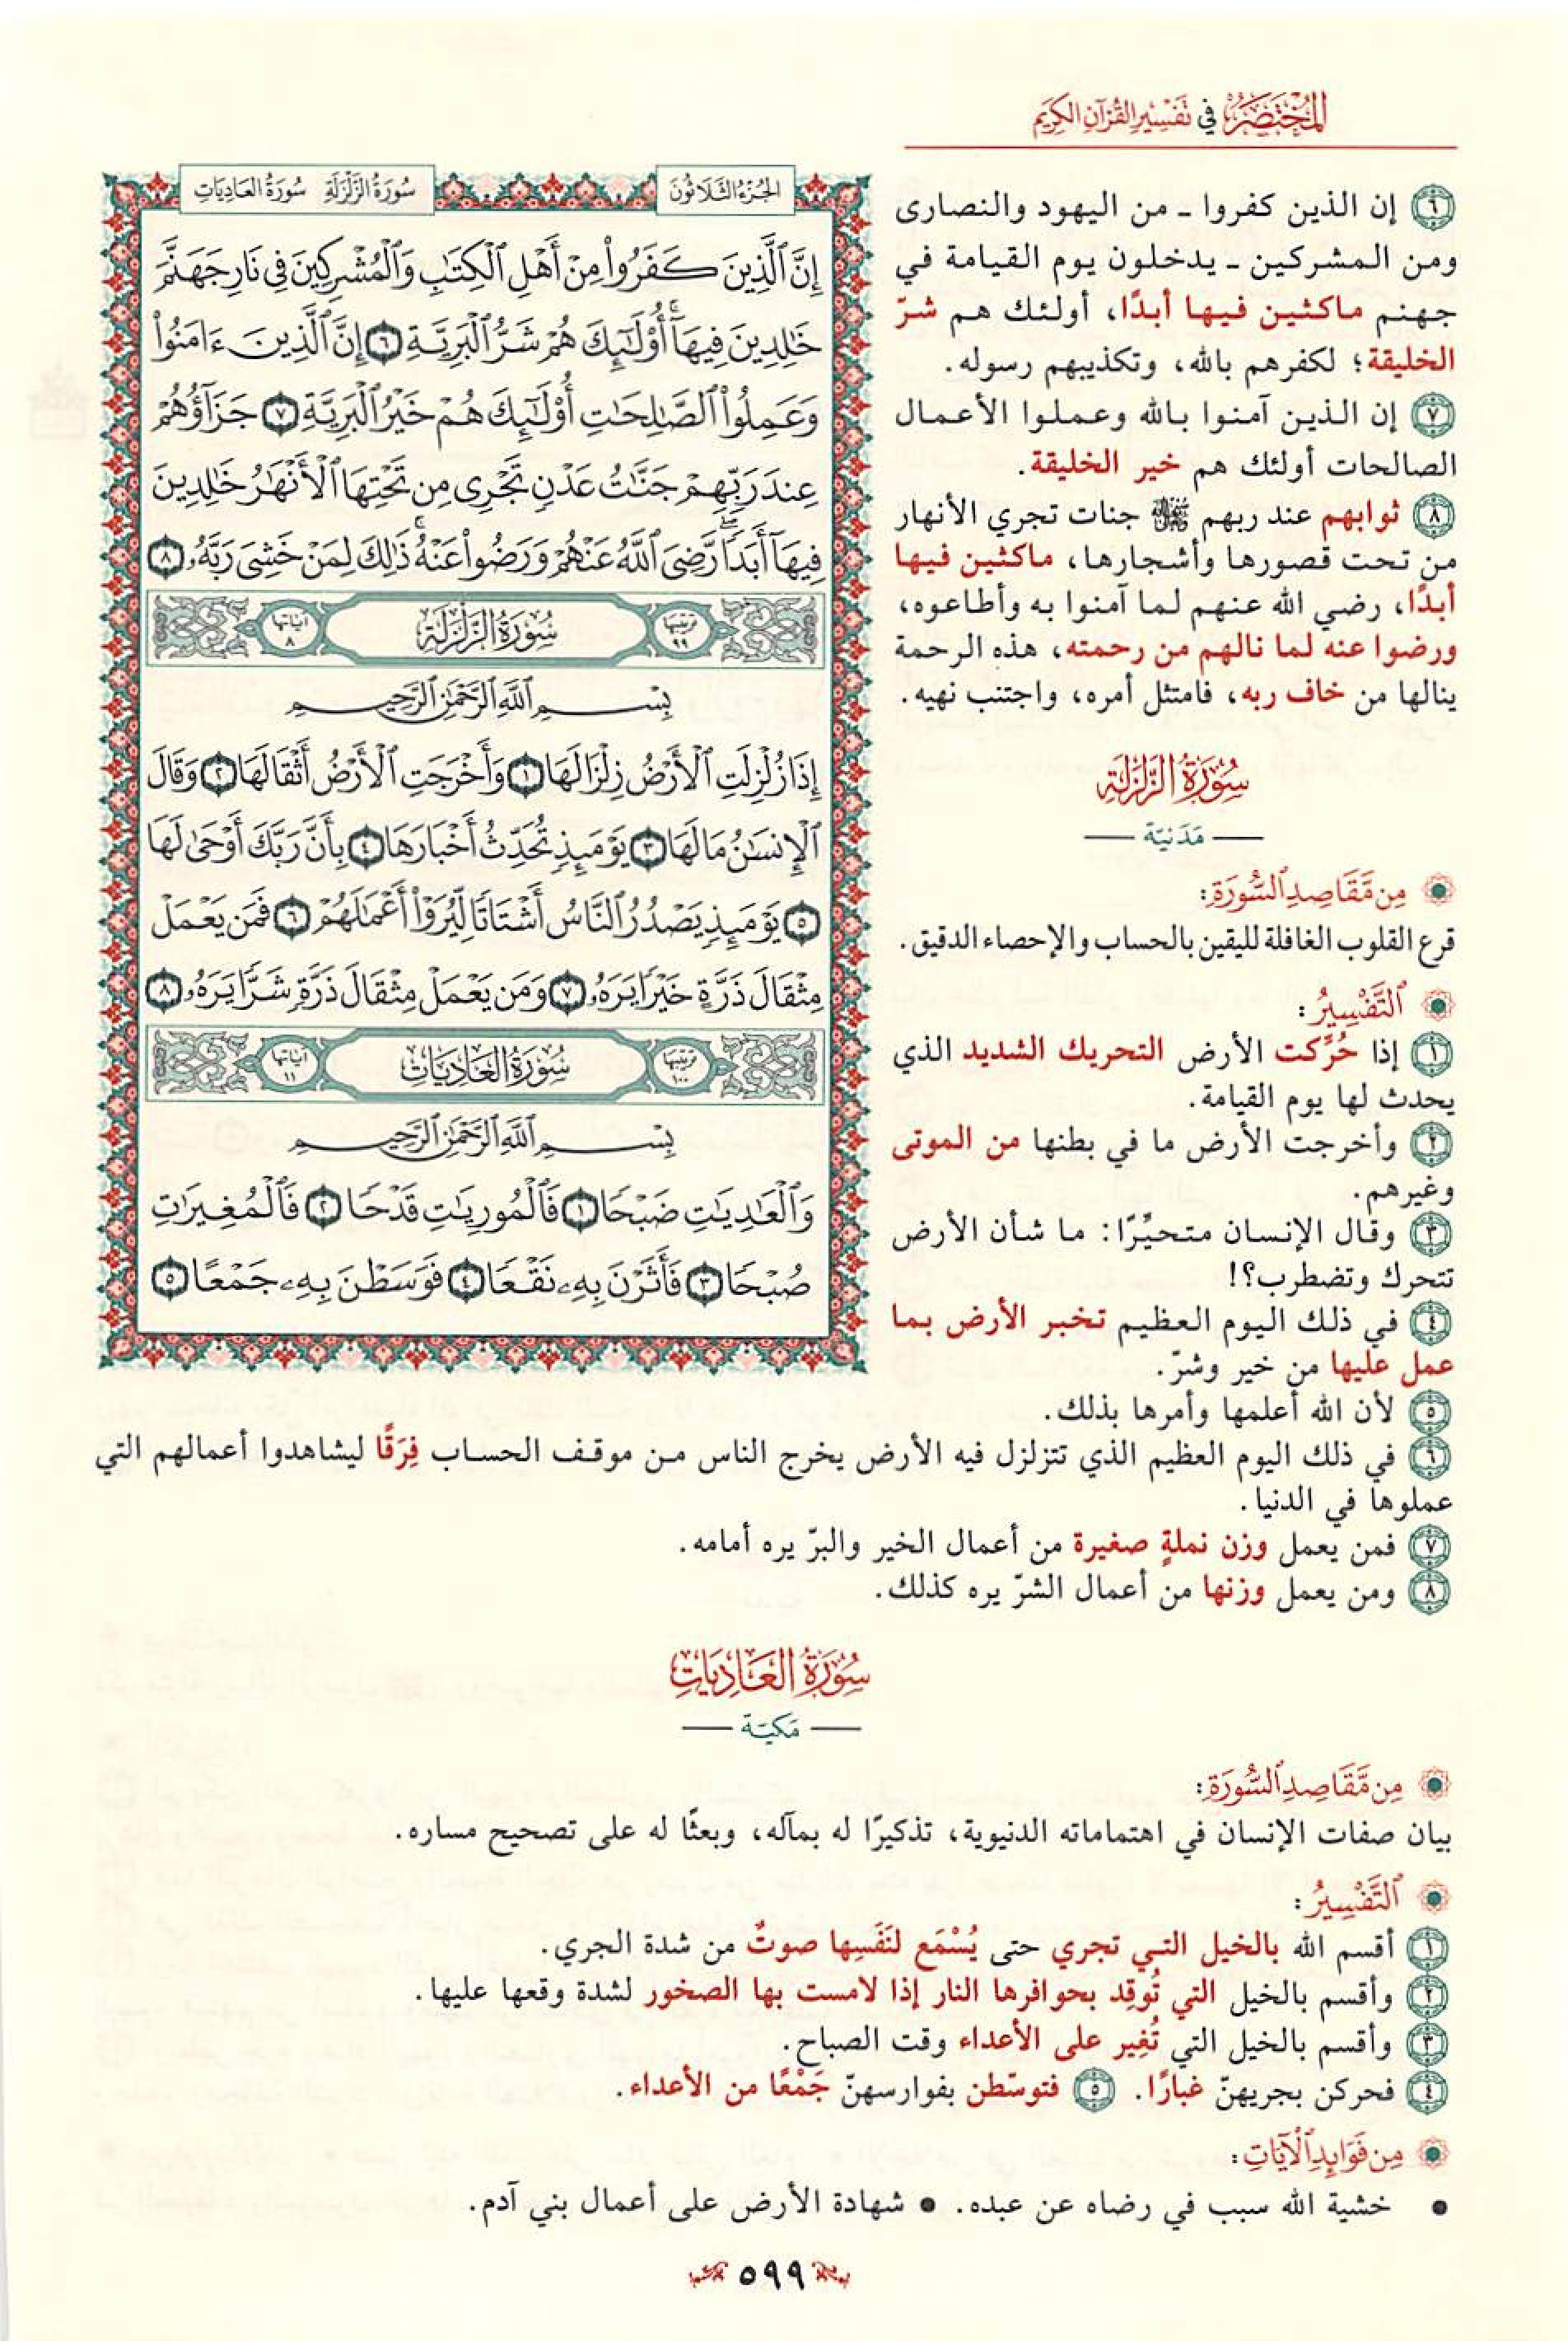 المختصر في تفسير القرآن الكريم
الجزء الثلاثون
سورة الزلزلة سورة العاديات
إِنَّ ٱلَّذِينَ كَفَرُوا۟ مِنْ أَهْلِ ٱلْكِتَٰبِ وَٱلْمُشْرِكِينَ فِى نَارِ جَهَنَّمَ
خَٰلِدِينَ فِيهَآ ۚ أُو۟لَٰٓئِكَ هُمْ شَرُّ ٱلْبَرِيَّةِ ٦ إِنَّ ٱلَّذِينَ ءَامَنُوا۟
وَعَمِلُوا۟ ٱلصَّٰلِحَٰتِ أُو۟لَٰٓئِكَ هُمْ خَيْرُ ٱلْبَرِيَّةِ ٧ جَزَآؤُهُمْ
عِندَ رَبِّهِمْ جَنَّٰتُ عَدْنٍ تَجْرِى مِن تَحْتِهَا ٱلْأَنْهَٰرُ خَٰلِدِينَ
فِيهَآ أَبَدًا ۖ رَّضِىَ ٱللَّهُ عَنْهُمْ وَرَضُوا۟ عَنْهُ ۚ ذَٰلِكَ لِمَنْ خَشِىَ رَبَّهُۥ ٨
ترتيبها ٩٩
سُورَةُ الزَّلْزَلَةِ
آياتها ٨
بِسْمِ ٱللَّهِ ٱلرَّحْمَٰنِ ٱلرَّحِيمِ
إِذَا زُلْزِلَتِ ٱلْأَرْضُ زِلْزَالَهَا ١ وَأَخْرَجَتِ ٱلْأَرْضُ أَثْقَالَهَا ٢ وَقَالَ
ٱلْإِنسَٰنُ مَا لَهَا ٣ يَوْمَئِذٍ تُحَدِّثُ أَخْبَارَهَا ٤ بِأَنَّ رَبَّكَ أَوْحَىٰ لَهَا
٥ يَوْمَئِذٍ يَصْدُرُ ٱلنَّاسُ أَشْتَاتًا لِّيُرَوْا۟ أَعْمَٰلَهُمْ ٦ فَمَن يَعْمَلْ
مِثْقَالَ ذَرَّةٍ خَيْرًا يَرَهُۥ ٧ وَمَن يَعْمَلْ مِثْقَالَ ذَرَّةٍ شَرًّا يَرَهُۥ ٨
ترتيبها ١٠٠
سُورَةُ العَادِيَاتِ
آياتها ١١
بِسْمِ ٱللَّهِ ٱلرَّحْمَٰنِ ٱلرَّحِيمِ
وَٱلْعَٰدِيَٰتِ ضَبْحًا ١ فَٱلْمُورِيَٰتِ قَدْحًا ٢ فَٱلْمُغِيرَٰتِ
صُبْحًا ٣ فَأَثَرْنَ بِهِۦ نَقْعًا ٤ فَوَسَطْنَ بِهِۦ جَمْعًا ٥
٦ إن الذين كفروا ـ من اليهود والنصارى
ومن المشركين ـ يدخلون يوم القيامة في
جهنم ماكثين فيها أبدًا، أولئك هم شرّ
الخليقة؛ لكفرهم بالله، وتكذيبهم رسوله.
٧ إن الذين آمنوا بالله وعملوا الأعمال
الصالحات أولئك هم خير الخليقة.
٨ ثوابهم عند ربهم جنات تجري الأنهار
من تحت قصورها وأشجارها، ماكثين فيها
أبدًا، رضي الله عنهم لما آمنوا به وأطاعوه،
ورضوا عنه لما نالهم من رحمته، هذه الرحمة
ينالها من خاف ربه، فامتثل أمره، واجتنب نهيه.
سُورَةُ الزَّلْزَلَةِ
مَدَنيّة
مِن مَّقَاصِدِ ٱلسُّورَةِ:
قرع القلوب الغافلة لليقين بالحساب والإحصاء الدقيق.
ٱلتَّفْسِيرُ:
١ إذا حُرِّكت الأرض التحريك الشديد الذي
يحدث لها يوم القيامة.
٢ وأخرجت الأرض ما في بطنها من الموتى
وغيرهم.
٣ وقال الإنسان متحيِّرًا: ما شأن الأرض
تتحرك وتضطرب؟!
٤ في ذلك اليوم العظيم تخبر الأرض بما
عمل عليها من خير وشرّ.
٥ لأن الله أعلمها وأمرها بذلك.
٦ في ذلك اليوم العظيم الذي تتزلزل فيه الأرض يخرج الناس من موقف الحساب فِرَقًا ليشاهدوا أعمالهم التي
عملوها في الدنيا.
٧ فمن يعمل وزن نملةٍ صغيرة من أعمال الخير والبرّ يره أمامه.
٨ ومن يعمل وزنها من أعمال الشرّ يره كذلك.
سُورَةُ العَادِيَاتِ
مَكيّة
مِن مَّقَاصِدِ ٱلسُّورَةِ:
بيان صفات الإنسان في اهتماماته الدنيوية، تذكيرًا له بمآله، وبعثًا له على تصحيح مساره.
ٱلتَّفْسِيرُ:
١ أقسم الله بالخيل التي تجري حتى يُسْمَع لنَفَسِها صوتٌ من شدة الجري.
٢ وأقسم بالخيل التي تُوقِد بحوافرها النار إذا لامست بها الصخور لشدة وقعها عليها.
٣ وأقسم بالخيل التي تُغِير على الأعداء وقت الصباح.
٤ فحركن بجريهنّ غبارًا. ٥ فتوسّطن بفوارسهنّ جَمْعًا من الأعداء.
مِن فَوَائِدِ ٱلْآيَاتِ:
• خشية الله سبب في رضاه عن عبده. • شهادة الأرض على أعمال بني آدم.
٥٩٩